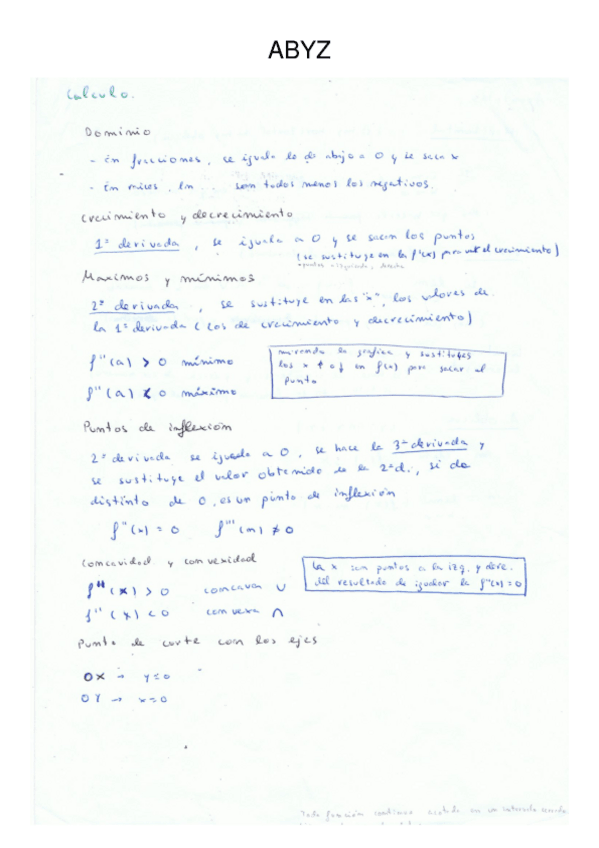 ABYZ
Calculo.
Dominio
- En fracciones, se iguala lo de abajo a 0 y se saca x
- En raices, ln son todos menos los negativos.
Crecimiento y decrecimiento
1ª derivada, se iguala a 0 y se sacan los puntos
(se sustituye en la f'(x) para ver el crecimiento)
Maximos y mínimos
2ª derivada, se sustituye en las "x", los valores de
la 1ª derivada (los de crecimiento y decrecimiento)
f''(a) > 0 mínimo
f''(a) < 0 máximo
mirando la grafica y sustituyes
los x o en f(x) para sacar el
punto
Puntos de inflexión
2ª derivada se iguala a 0, se hace la 3ª derivada y
se sustituye el valor obtenido de la 2ªd., si da
distinto de 0, es un punto de inflexión
f''(x) = 0 f'''(m) ≠ 0
Concavidad y convexidad
f''(x) > 0 concava ∪
f''(x) < 0 convexa ∩
La x son puntos a la izq. y dere.
del resultado de igualar la f''(x) = 0
Punto de corte con los ejes
OX → y=0
OY → x=0
Toda función continua acotada en un intervalo